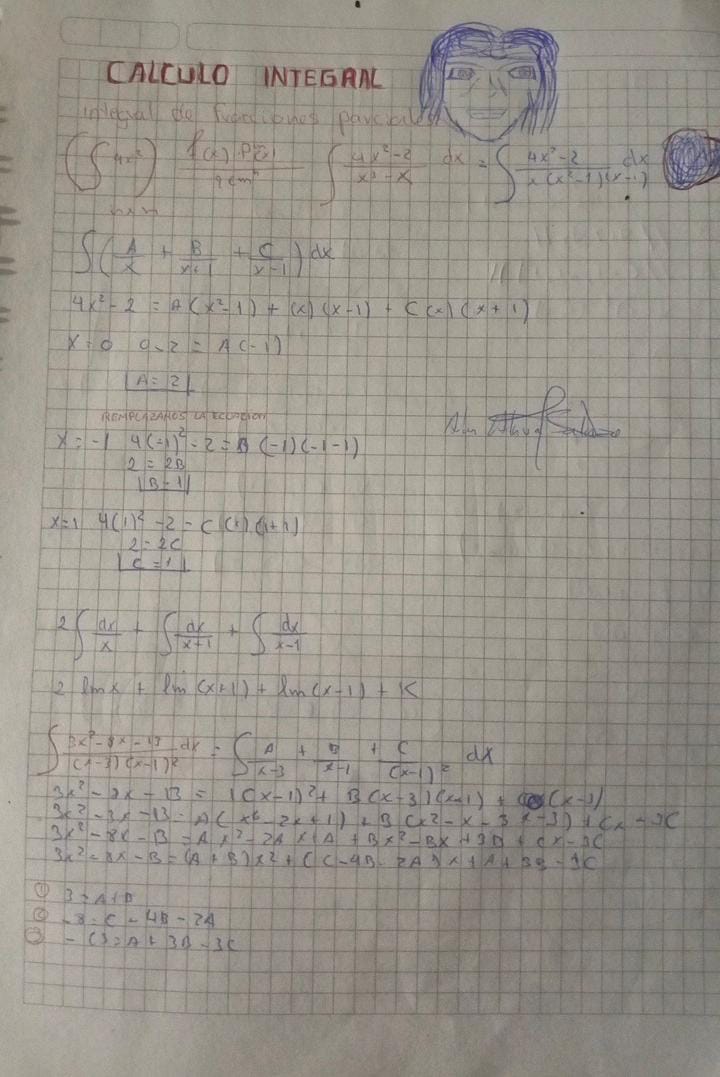 CALCULO INTEGRAL
integral de fracciones parciales
(∫ 4x²) f(x) ∫ 4x²-2 / x³-x dx = ∫ 4x²-2 / x(x²-1)(x-1) dx
∫(A/x + B/x+1 + C/x-1) dx
4x²-2 = A(x²-1) + (x)(x-1) + C(x)(x+1)
x=0 0-2 = A(-1)
A=2
REMPLAZAMOS LA ECUACION
x=-1 4(-1)²-2 = B(-1)(-1-1)
2 = 2B
B-1
x=1 4(1)²-2 = C(1)(1+1)
2=2C
C=1
2∫dx/x + ∫dx/x+1 + ∫dx/x-1
2 lmx + lm(x+1) + lm(x-1) + K
∫ 3x²-8x-13 / (x-3)(x-1)² dx = ∫ A/x-3 + B/x-1 + C/(x-1)² dx
3x²-8x-13 = 1(x-1)² + B(x-3)(x-1) + (x-3)
3x²-3x-13 = A(x²-2x+1) + B(x²-x-3x-3) + Cx-3C
3x²-8x-B = Ax²-2Ax+A + Bx²-Bx+3B + Cx-3C
3x²-8x-B = (A+B)x² + (C-4B-2A)x + A+3B-3C
① 3=A+B
② -8=C-4B-2A
③ -13=A+3B-3C